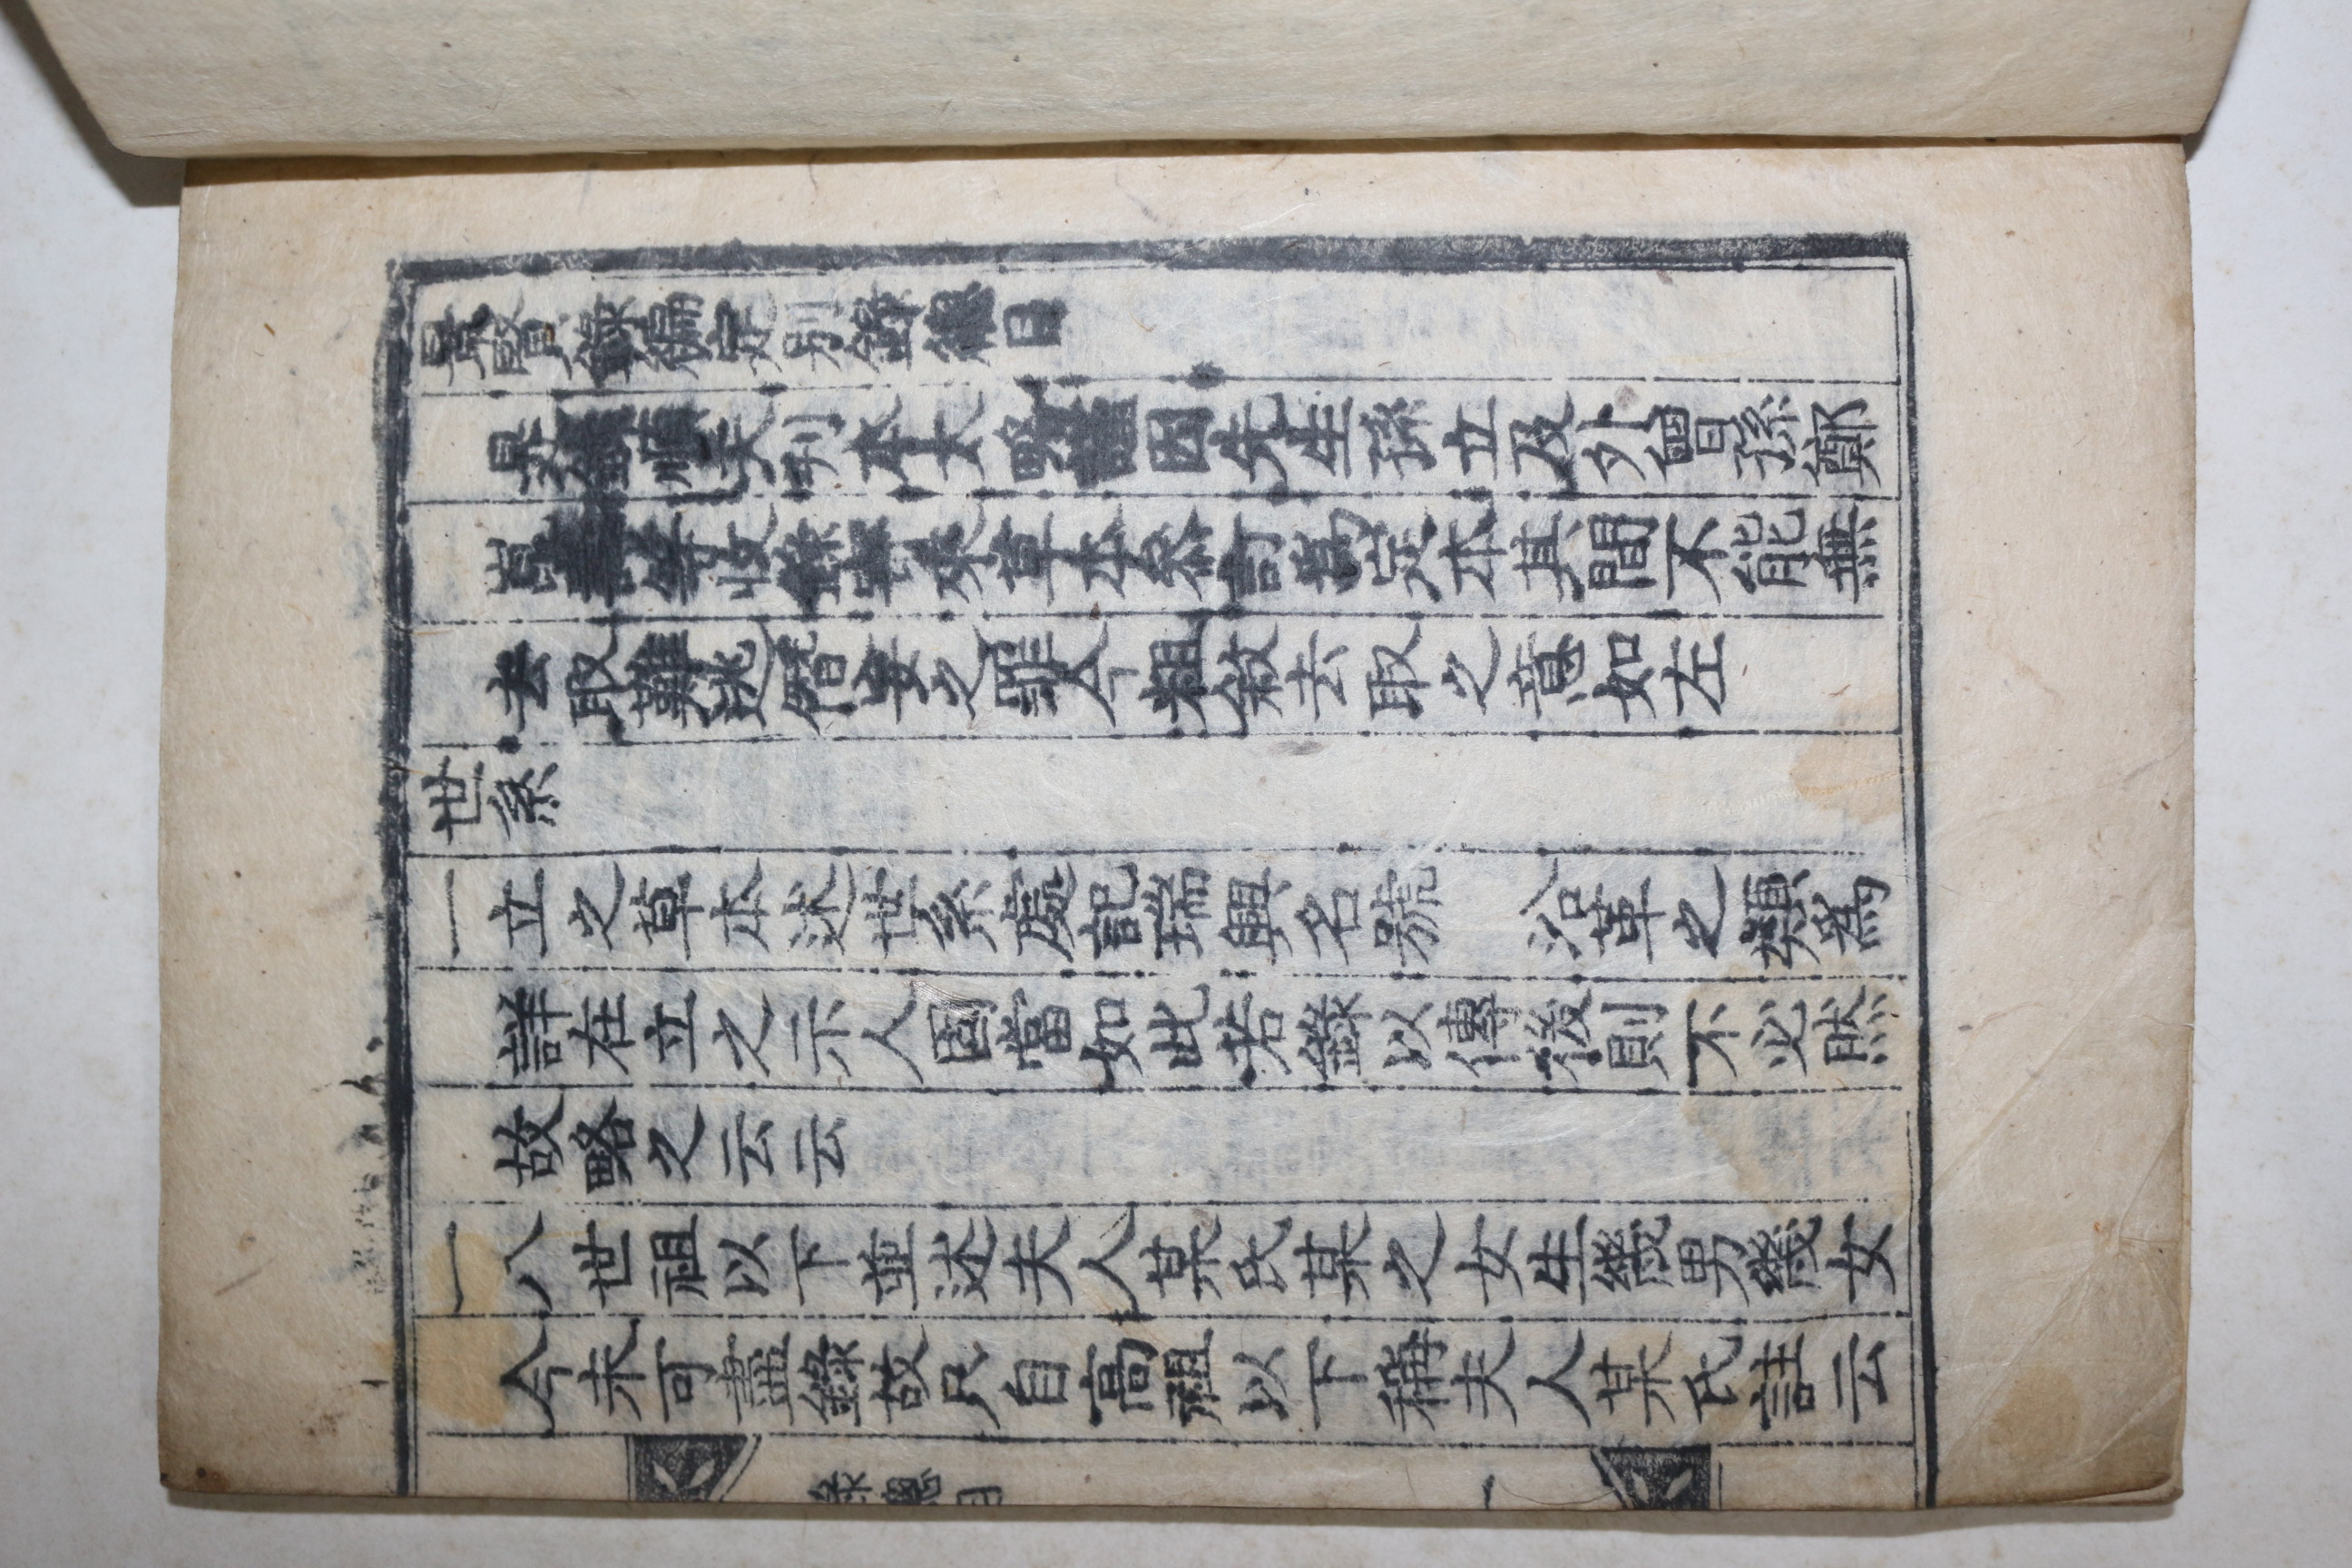 景賢錄編定別錄總目
是錄順天刊本太略謹因先生孫立及外曾孫鄭
崑壽等收錄寄來草本叅訂爲定本其間不能無
去取難逃僭妄之罪今粗敘去取之意如左
世系
一立之草本述世系處記瑞興名號 沿革之類爲
詳在立之示人固當如此若錄以傳後則不必然
故略之云云
一八世祖以下並述夫人某氏某之女生幾男幾女
今未可盡錄故只自高祖以下稱夫人某氏註云
錄總目
一